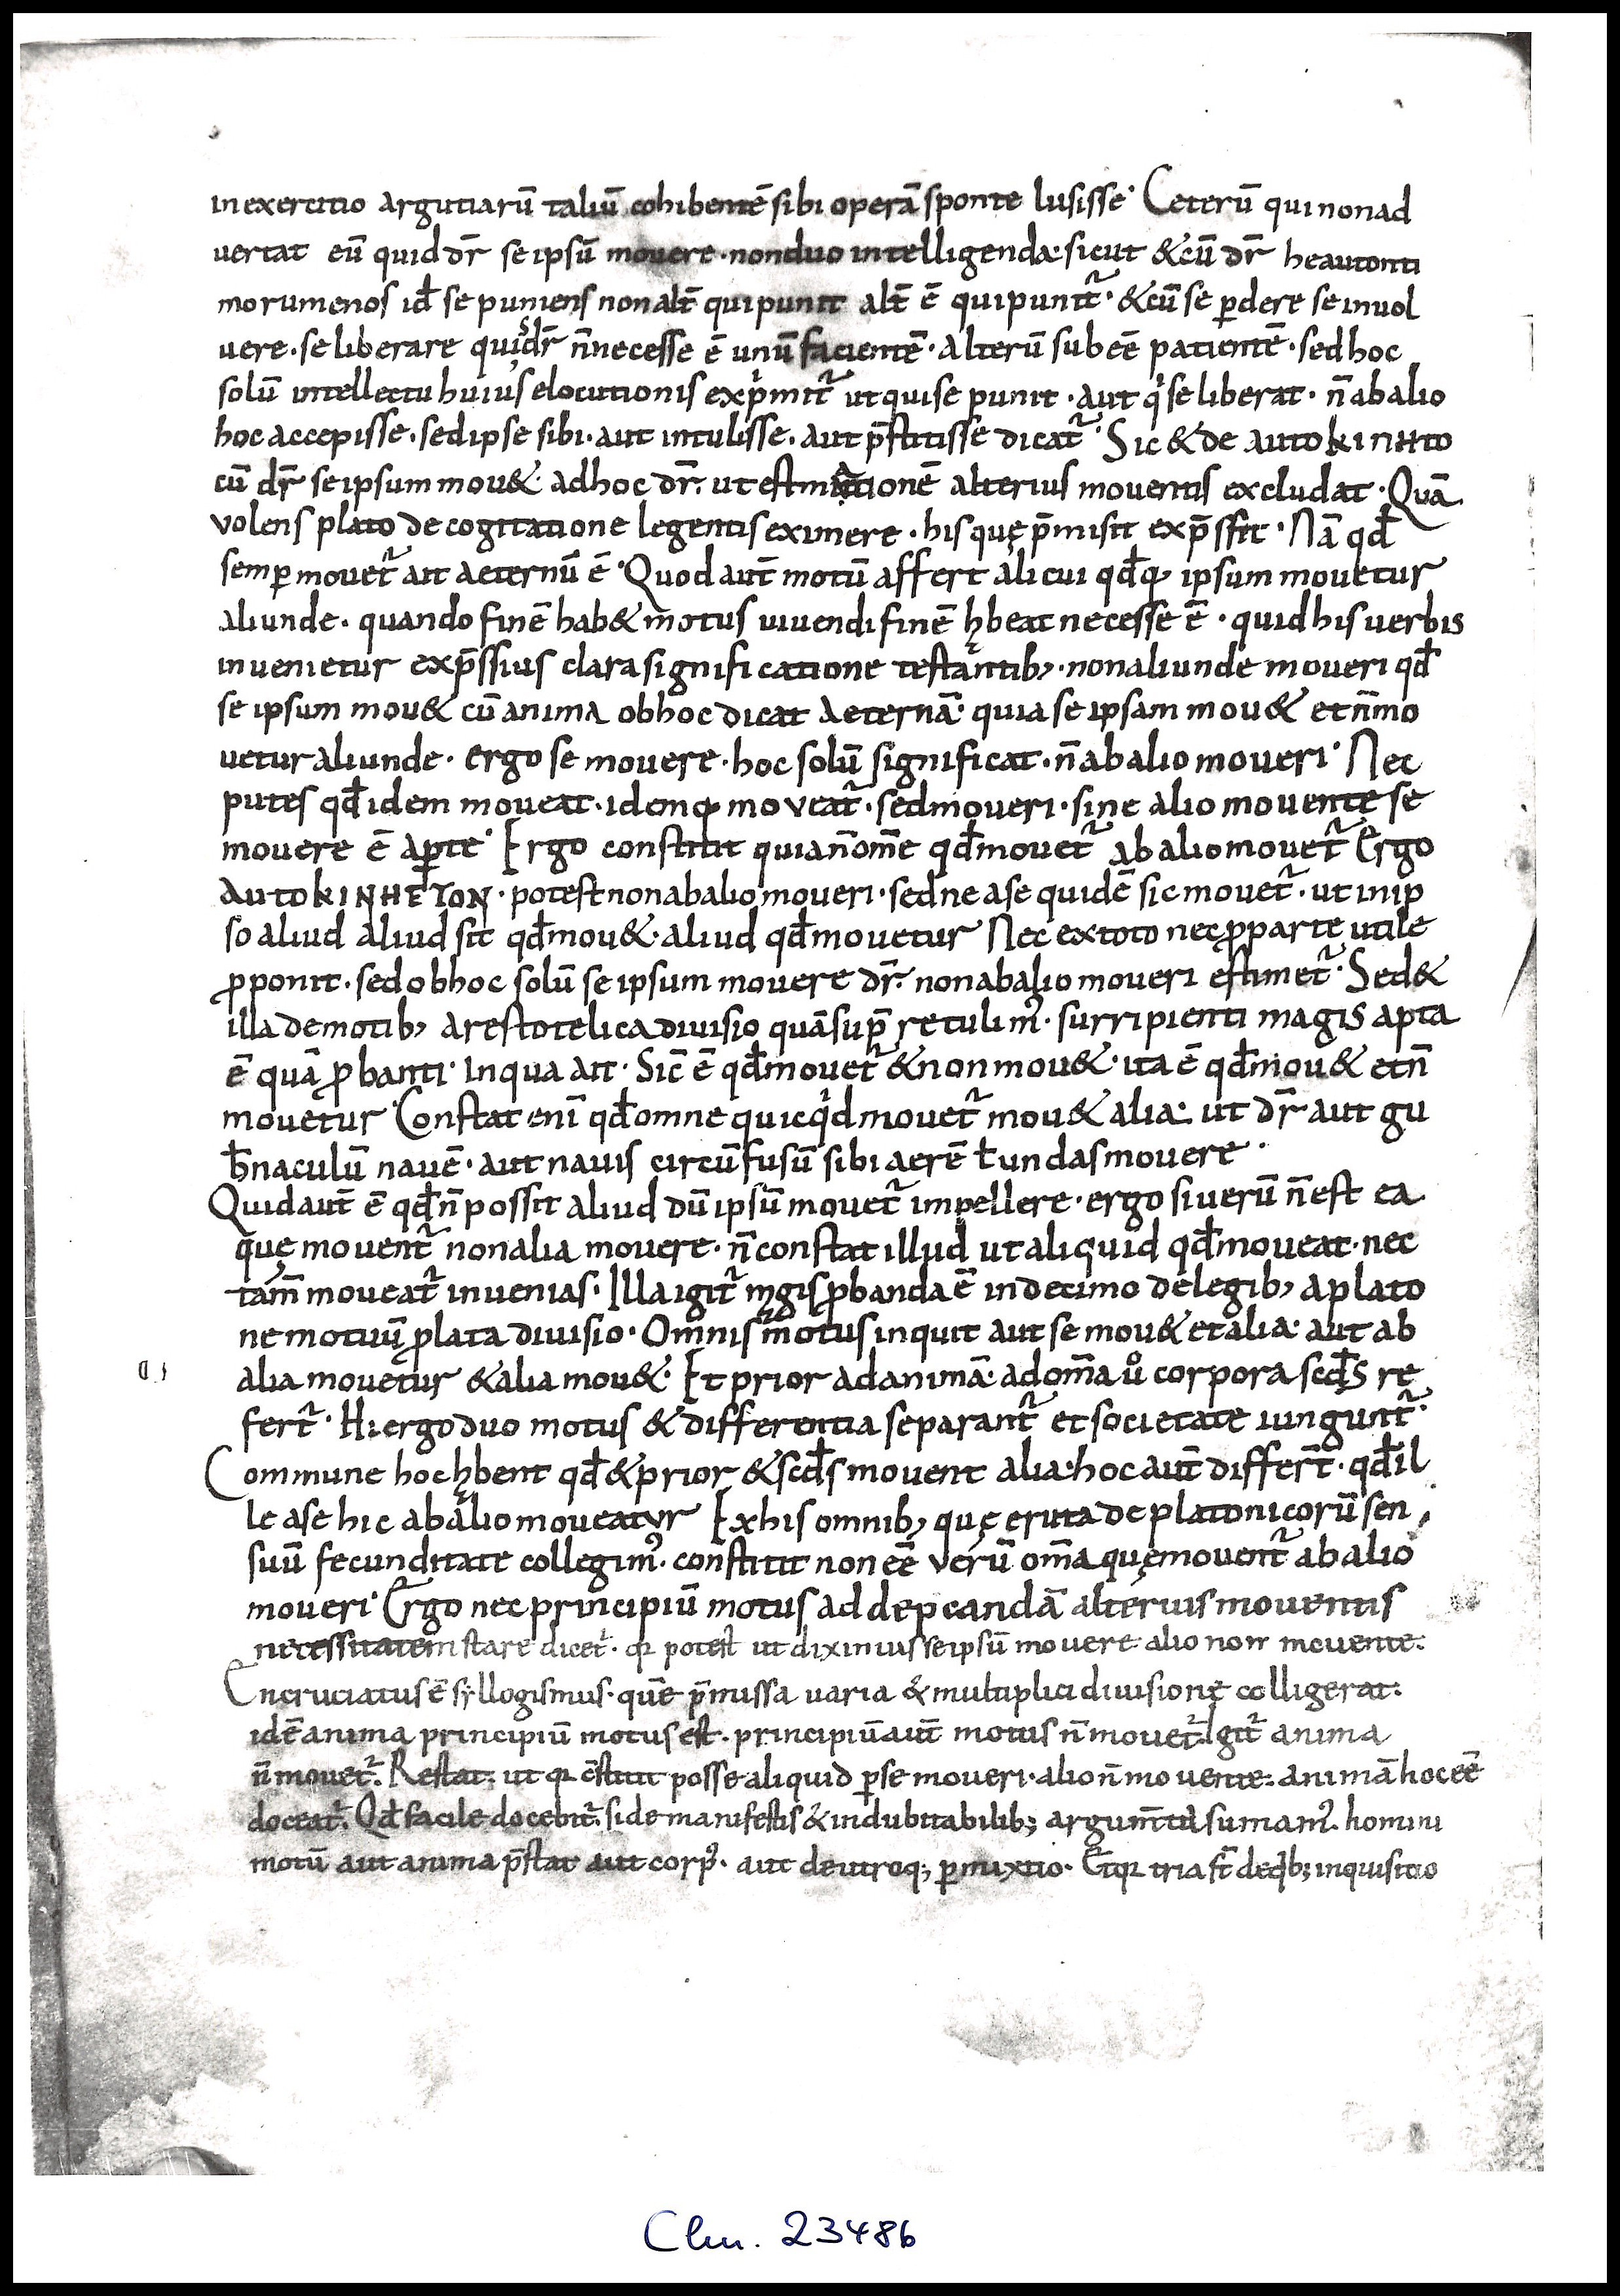 in exercitio argutiarū taliū cohibentē sibi operā sponte lusisse· Ceterū qui non ad
vertat eū quid dr̄ se ipsū movere · non duo intelligenda· sicut &cū dr̄ heautonti
morumenos id̄ se puniens non alt̄ qui punit alt̄ ē qui punit᷑ · &cū se ꝑdere se invol
vere · se liberare quis dr̄ n̄ necesse ē unū facientē · alterū subeē patientē · sed hoc
solū intellectu huius elocutionis exp̍mit᷑ ut qui se punit · aut q̍ se liberat · n̄ ab alio
hoc accepisse · sed ipse sibi · aut intulisse · aut p̄stitisse dicat᷑ · Sic & de autokinHto
cū dr̄ se ipsum mou&· ad hoc dr̄· ut estimationē alterius moventis excludat · Quā
volens plato de cogitatione legentis eximere · his quę p̄misit exp̄ssit · Nā qd̄
semꝑ movet᷑ ait aeternū ē · Quod aut̄ motū affert alicui qd̄q; ipsum movetur
aliunde · quando finē hab& motus vivendi finē hbeat necesse ē · quid his verbis
invenietur exp̄ssius clara significatione testantib; · non aliunde moveri qd̄
se ipsum mou& cū anima ob hoc dicat aeternā· quia se ipsam mou& et n̄ mo
vetur aliunde · ergo se movere · hoc solū significat · n̄ ab alio moveri · Nec
putes qd̄ idem moveat · idemq; moveat᷑ · sed moveri · sine alio movente se
movere ē aꝑte · Ergo constitit quia n̄ om̄e qd̄ movet᷑ ab alio movet᷑ Ergo
AutoKINHETON · potest non ab alio moveri · sed ne a se quidē sic movet᷑ · ut in ip
so aliud aliud sit qd̄ mou&· aliud qd̄ movetur Nec ex toto nec ꝓ parte utile
ꝓponit · sed ob hoc solū se ipsum movere dr̄· non ab alio moveri estimet᷑ · Sed &
illa de motib; arestotelica divisio quā sup̄ retulim᷒ · surripienti magis apta
ē quā ꝓbanti· In qua ait · Sic̄ ē qd̄ movet᷑ & non mou&· ita ē qd̄ mou& et n̄
movetur · Constat enī qd̄ omne quicq̍d movet᷑ mou& alia· ut dr̄ aut gu
b̄naculū navē · aut navis circū fusū sibi aerē ł undas movere ·
Quid aut̄ ē qd̄ n̄ possit aliud dū ipsū movet᷑ impellere · ergo si verū n̄ est ea
quę movent᷑ non alia movere · n̄ constat illud ut aliquid qd̄ moveat · nec
tam̄ moveat᷑ invenias · Illa igit᷑ mgis ꝓbanda ē in decimo de legib; a plato
ne motuū ꝓlata divisio · Omnis motus inquit aut se mou& et alia· aut ab
alia movetur & alia mou&· Et prior ad animā· ad om̄a v̊ corpora scd̄s re
fert᷑ · Hi ergo duo motus & differentia separant᷑ et societate iungunt᷑ ·
Commune hoc hbent qd̄ & prior & scd̄s movent alia· hoc aut̄ differt̄ · qd̄ il
le a se hic ab alio moveatvr Ex his omnib; quę eruta de platonicorū sen
suū fecunditate collegim᷒ · constitit non eē verū om̄a quę movent᷑ ab alio
moveri · Ergo nec principiū motus ad depcandā alterius moventis
necessitatem stare dicet᷑ · qꝛ potest ut diximus se ipsū movere alio non movente·
Encruciatus ē syllogismus · quē p̄missa varia & multiplici divisione colligerat·
idē anima principiū motus est · principiū aut̄ motus n̄ movet᷑· Igit᷑ anima
n̄ movet᷑· Restat· ut qꝛ c̄stitit posse aliquid ꝑse moveri · alio n̄ movente· animā hoc eē
doceat᷑· Qd̄ facile docebit᷑· si de manifestis & indubitabilib; argum̄tū sumam᷒· homini
motū aut anima p̄stat aut corp᷒ · aut de utroq; ꝑmixtio · Et qꝛ tria st̄ de q̍b; inquisitio
Clm. 23486